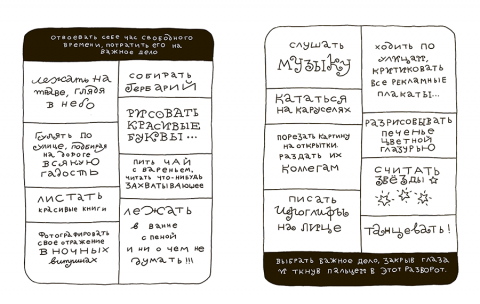 ОТВОЕВАТЬ СЕБЕ ЧАС СВОБОДНОГО
ВРЕМЕНИ, ПОТРАТИТЬ ЕГО НА
ВАЖНОЕ ДЕЛО
лежать на
траве, глядя
в небо
гулять по
улице, подбирая
на дороге
всякую
гадость
листать
красивые книги
Фотографировать
свое отражение
в ночных
витринах
собирать
гербарий
рисовать
красивые
буквы...
пить чай
с вареньем,
читать что-нибудь
захватывающее
лежать
в ванне
с пеной
и ни о чем не
думать!!!
слушать
музыку
кататься
на каруселях
порезать картинку
на открытки
раздать их
коллегам
писать
иероглифы
на лице
ходить по
улицам,
критиковать
все рекламные
плакаты...
разрисовывать
печенье
цветной
глазурью
считать
звёзды
танцевать!
ВЫБРАТЬ ВАЖНОЕ ДЕЛО, ЗАКРЫВ ГЛАЗА
И ТКНУВ ПАЛЬЦЕМ В ЭТОТ РАЗВОРОТ.